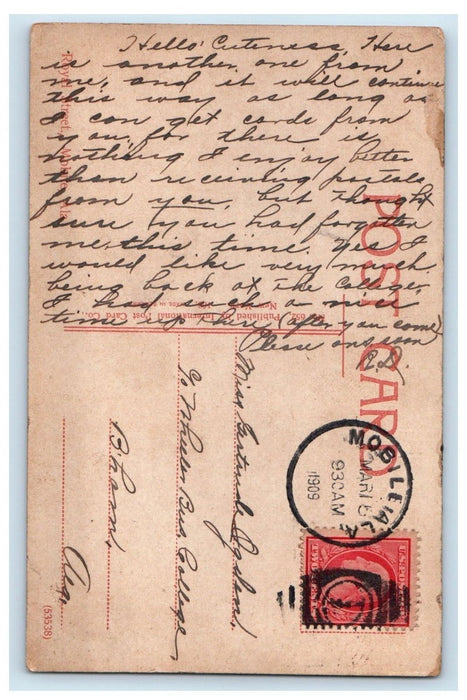 Hello Cuteness, Here
is another one from
me, and it will continue
this way as long as
I can get cards from
you, for there is
nothing I enjoy better
than receiving postals
from you, but thought
sure you had forgotten
me this time. Yes I
would like very much
being back at the College,
I had such a nice
time up there (after you came)
Please ans soon
R.D.
Royal Street, Mobile, Ala.
POST CARD
No. 652, Published by International Post Card Co.,
New
MOBILE, ALA.
MAR 18
930AM
1909
Miss Gertrude
c/o Wheeler Bus. College
B'ham,
Ala.
(53538)